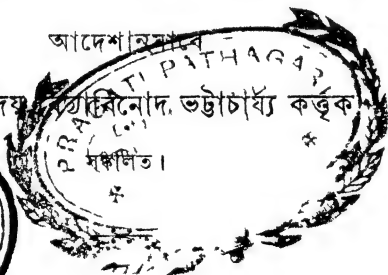 আদেশানুসারে
বিদ্যাবিনোদ, ভট্টাচার্য্য কর্ত্তৃক
সঙ্কলিত।
PATHAGAR